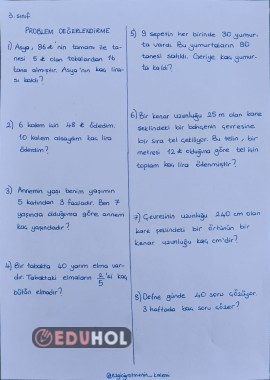 3. sınıf
PROBLEM DEĞERLENDİRME
1) Asya, 86 ₺ nin tamamı ile ta-
nesi 5 ₺ olan tokalardan
tane almıştır. Asya'nın kaç lira-
sı kaldı?
2) 6 kalem için 48 ₺ ödedim.
10 kalem alsaydım kaç lira
öderdim?
3) Annemin yaşı benim yaşımın
5 katından 3 fazladır. Ben 7
yaşında olduğuma göre annem
kaç yaşındadır?
4) Bir tabakta 40 yarım elma var-
dır. Tabaktaki elmaların 2/5'si kaç
bütün elmadır?
5) 3 sepetin her birinde 30 yumur-
ta vardı. Bu yumurtaların 30
tanesi satıldı. Geriye kaç yumur-
ta kaldı?
6) Bir kenar uzunluğu 25 m olan kare
şeklindeki bir bahçenin çevresine
bir sıra tel çekiliyor. Bu telin, bir
metresi 12 ₺ olduğuna göre tel için
toplam kaç lira ödenmiştir?
7) Çevresinin uzunluğu 240 cm olan
kare şeklindeki bir örtünün bir
kenar uzunluğu kaç cm'dir?
8) Defne günde 40 soru çözüyor.
3 haftada kaç soru çözer?
EDUHOL